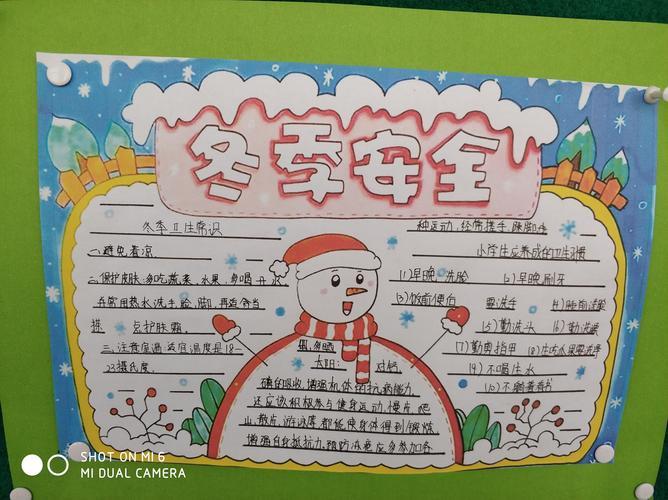 冬季安全
冬季卫生常识
一、避免着凉
二、保护皮肤:多吃蔬菜、水果,多喝开水
并常用热水洗手、脸、脚,再适当
搽 护肤霜
三、注意室温:适宜温度是18—
23摄氏度
太阳:
磷的吸收,增强机体的抗病能力
还应该积极参与健身运动,慢爬
山、散步、游泳等都能使身体得到锻炼
增强自身抵抗力,预防冻疮应多参加各
种运动,经常搓手、跺脚等
小学生应养成的卫生习惯
(1)早晚洗脸 (2)早晚刷牙
(3)饭前便后 要洗手 (4)睡前洗脚
(5)勤洗头 (6)勤洗澡
(7)勤剪指甲 (8)生吃水果要洗净
(9)不喝生水
(10)不躺着看书
SHOT ON MI 6
MI DUAL CAMERA